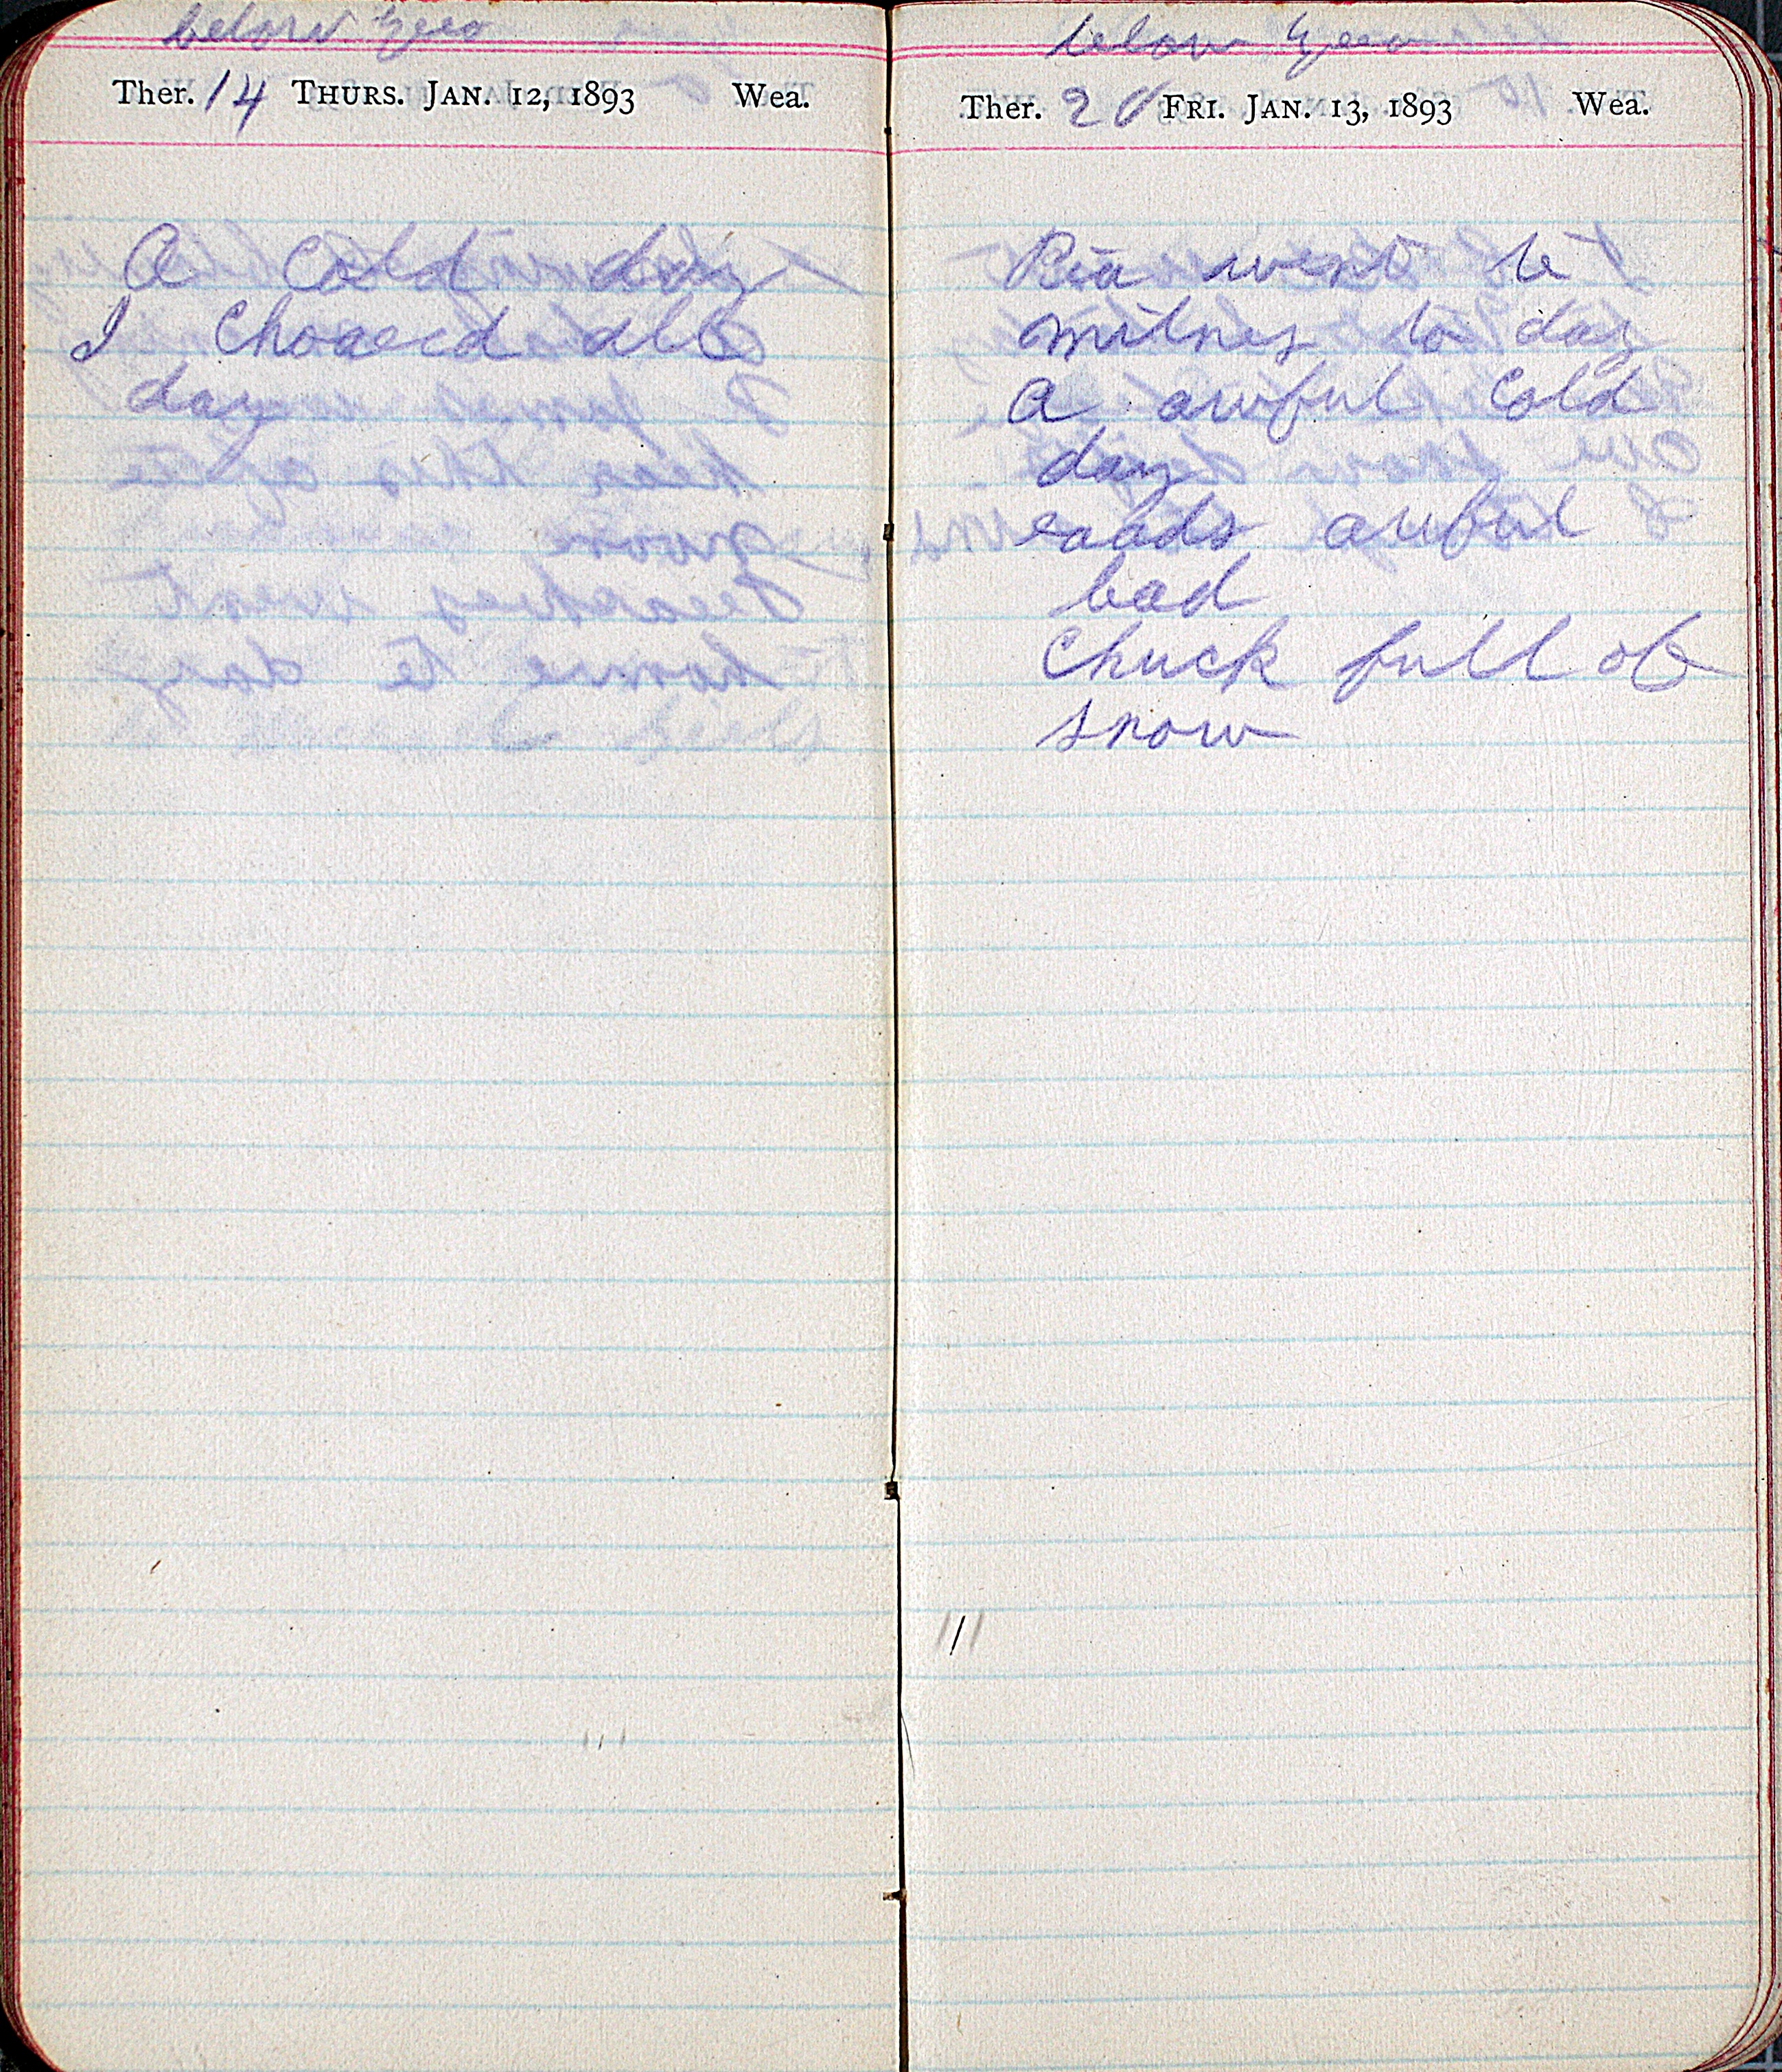 below Zero
Ther. 14 THURS. JAN. 12, 1893 Wea.
A Cold day
I Choared all
day
below Zero
Ther. 20 FRI. JAN. 13, 1893 Wea.
went to
milnes to day
a awful Cold
day
roads awful
bad
Chuck full of
snow